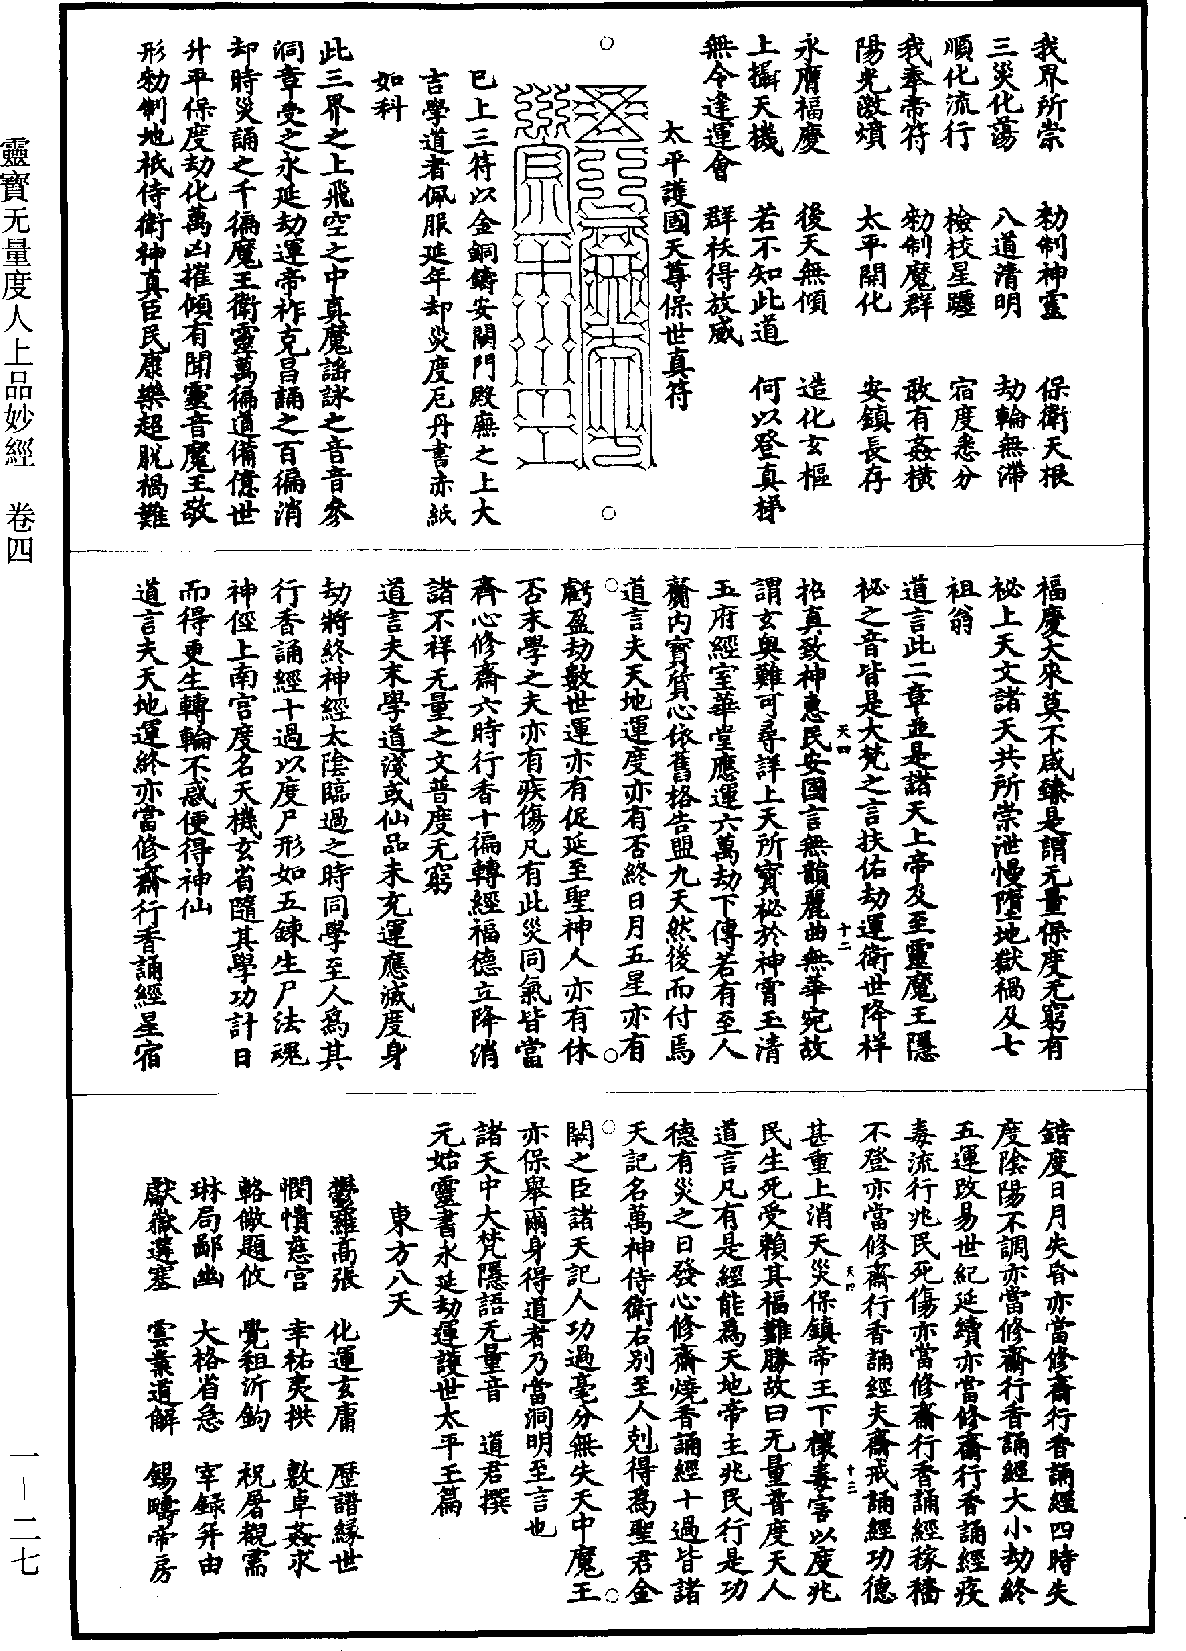 我界所崇　勑制神靈　保衛天根
三災化蕩　八道清明　劫輪無滯
順化流行　檢校星躔　宿度悉分
我奉帝符　勑制魔群　敢有姦橫
陽光激熕　太平開化　安鎮長存
永膺福慶　後天無傾　造化玄樞
上攝天機　若不知此道　何以登真梯
無令違運會　群祅得放威
太平護國天尊保世真符
已上三符以金銅鑄安闕門殿廡之上大
言學道者佩服延年却災度厄丹書亦紙
如科
此三界之上飛空之中真魔謡詠之音音參
洞章受之永延劫運帝祚克昌誦之百徧消
却時災誦之千徧魔王衛靈萬徧道備億世
升平保度劫化萬凶摧傾有聞靈音魔王敬
形勑制地祇侍衛神真臣民康樂超脱禍難
福慶大來莫不咸臻是謂无量保度无窮有
祕上天文諸天共所崇泄慢墮地獄禍及七
祖翁
道言此二章並是諸天上帝及至靈魔王隱
祕之音皆是大梵之言扶佑劫運衛世降祥
招真致神惠民安國言無韻麗曲無華宛故
謂玄奥難可尋詳上天所寶祕於神霄玉清
五府經室華堂應運六萬劫下傳若有至人
齎内寶質心依舊格告盟九天然後而付焉
道言夫天地運度亦有否終日月五星亦有
虧盈劫數世運亦有促延至聖神人亦有休
否末學之夫亦有疾傷凡有此災同氣皆當
齊心修齋六時行香十徧轉經福德立降消
諸不祥无量之文普度无窮
道言夫末學道淺或仙品未充運應滅度身
劫將終神經太陰臨過之時同學至人為其
行香誦經十過以度尸形如五鍊生尸法魂
神徑上南宫度名天機玄省隨其學功計日
而得更生轉輪不惑便得神仙
道言夫天地運終亦當修齋行香誦經星宿
天四　十二
錯度日月失昏亦當修齋行香誦經四時失
度陰陽不調亦當修齋行香誦經大小劫終
五運改易世紀延續亦當修齋行香誦經疫
毒流行兆民死傷亦當修齋行香誦經稼穡
不登亦當修齋行香誦經夫齋戒誦經功德
甚重上消天災保鎮帝王下禳毒害以度兆
民生死受賴其福難勝故曰无量普度天人
道言凡有是經能為天地帝主兆民行是功
德有災之日發心修齋燒香誦經十過皆諸
天記名萬神侍衛右别至人剋得為聖君金
闕之臣諸天記人功過毫分無失天中魔王
亦保舉爾身得道者乃當洞明至言也
諸天中大梵隱語无量音　道君撰
元始靈書永延劫運護世太平王篇
東方八天
鬱羅高張　化運玄庸　歷譜緣世
憫憒慈宫　幸祐夷拱　敷卓姦求
輅傲題攸　覺租沂鈎　祝屠觀需
琳局鄙幽　大格省急　宰録幷由
獻嶽遘塞　雲業道解　錫疇帝房
天四　十三
靈寶无量度人上品妙經　卷四
一－二七